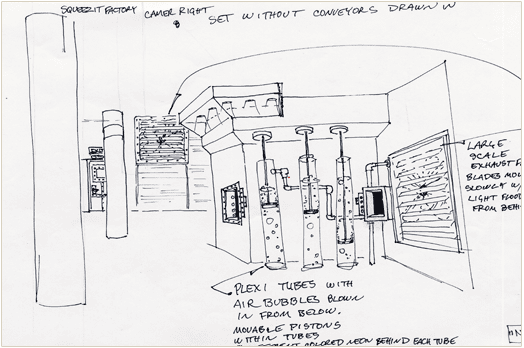 SQUEEZIT FACTORY CAMER RIGHT
& SET WITHOUT CONVEYORS DRAWN IN
LARGE
SCALE
EXHAUST F
BLADES MOV
SLOWLY W/
LIGHT FLOOD
FROM BEHI
PLEXI TUBES WITH
AIR BUBBLES BLOWN
IN FROM BELOW.
MOVABLE PISTONS
WITHIN TUBES
COLORED NEON BEHIND EACH TUBE